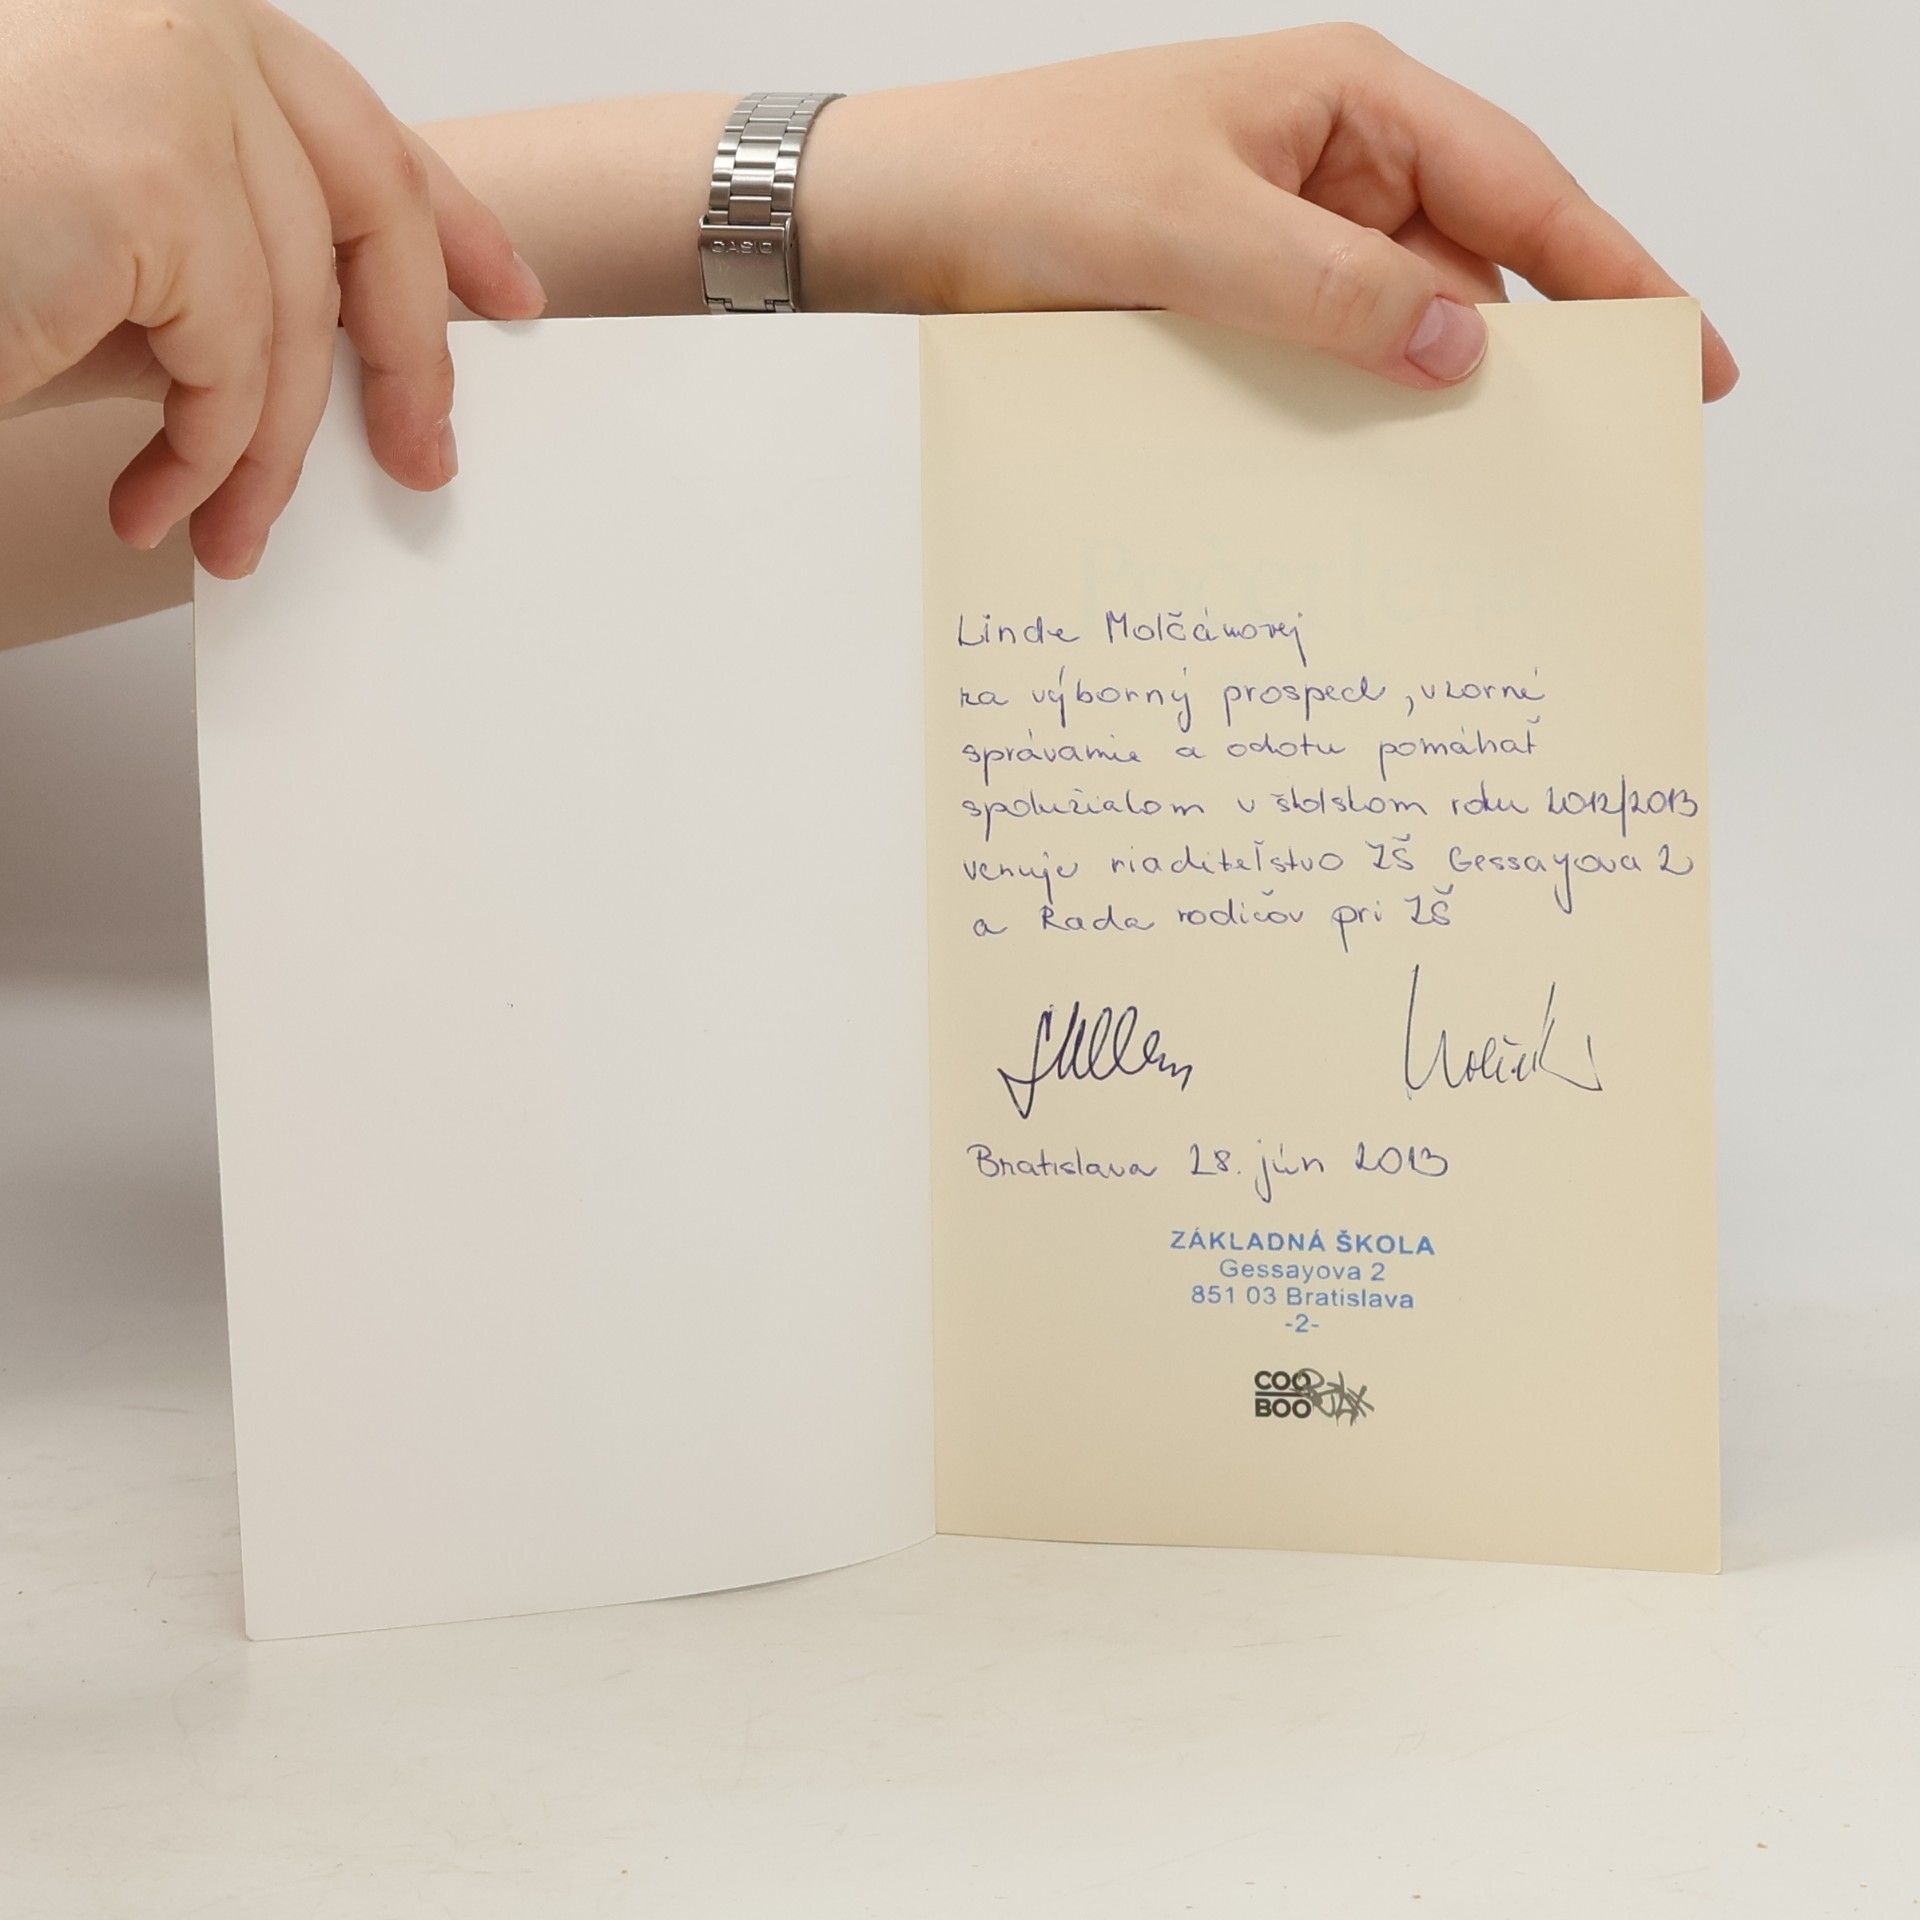 CASIO
Linde Molčánovej
za výborný prospech, vzorné
správanie a ochotu pomáhať
spolužiakom v školskom roku 2012/2013
venuje riaditeľstvo ZŠ Gessayova 2
a Rada rodičov pri ZŠ
Bratislava 28. jún 2013
ZÁKLADNÁ ŠKOLA
Gessayova 2
851 03 Bratislava
-2-
COO
BOO